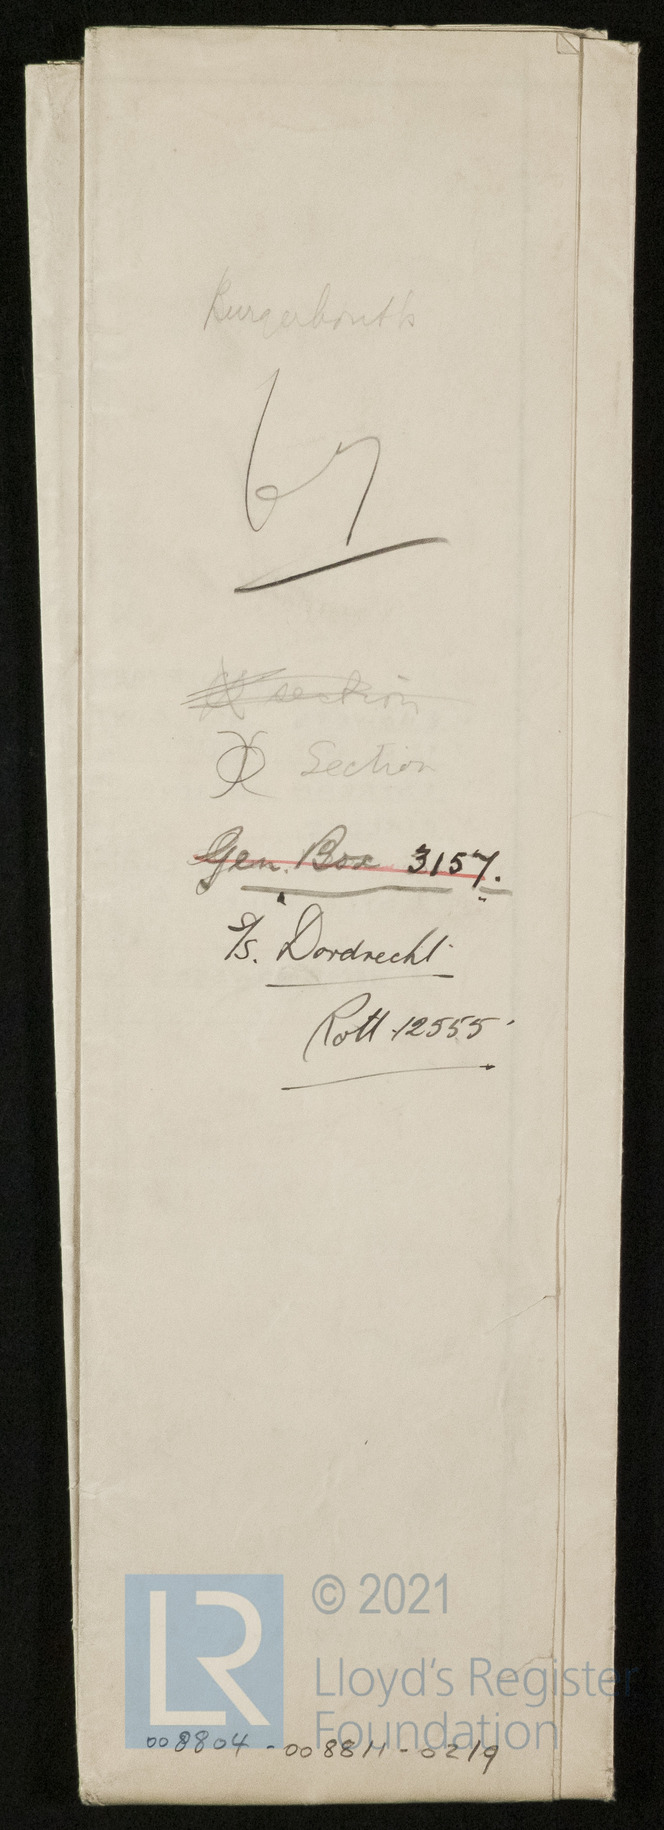 67
section
Section
Gen. Box 3157.
S/s. Dordrecht
Rott 12555
LR
© 2021
Lloyd's Register
Foundation
008804 - 008811 - 0219